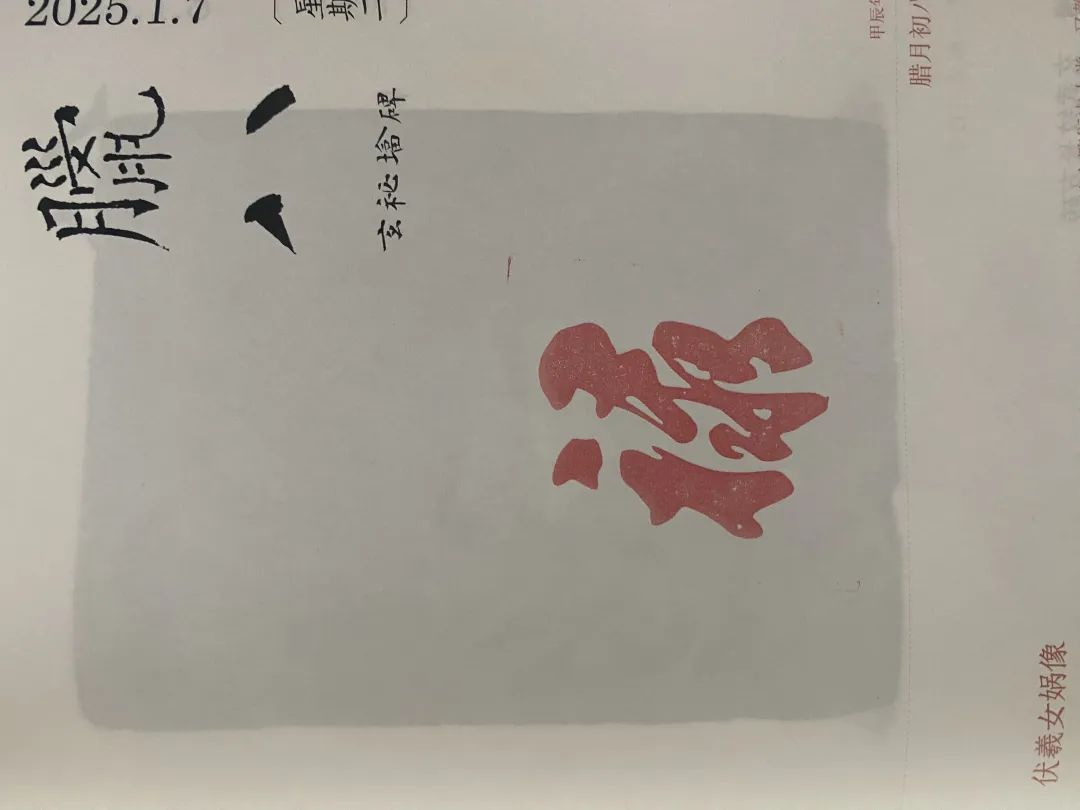 2025.1.7
星期二
臘八
玄祕塔碑
福
腊月初八
伏羲女娲像